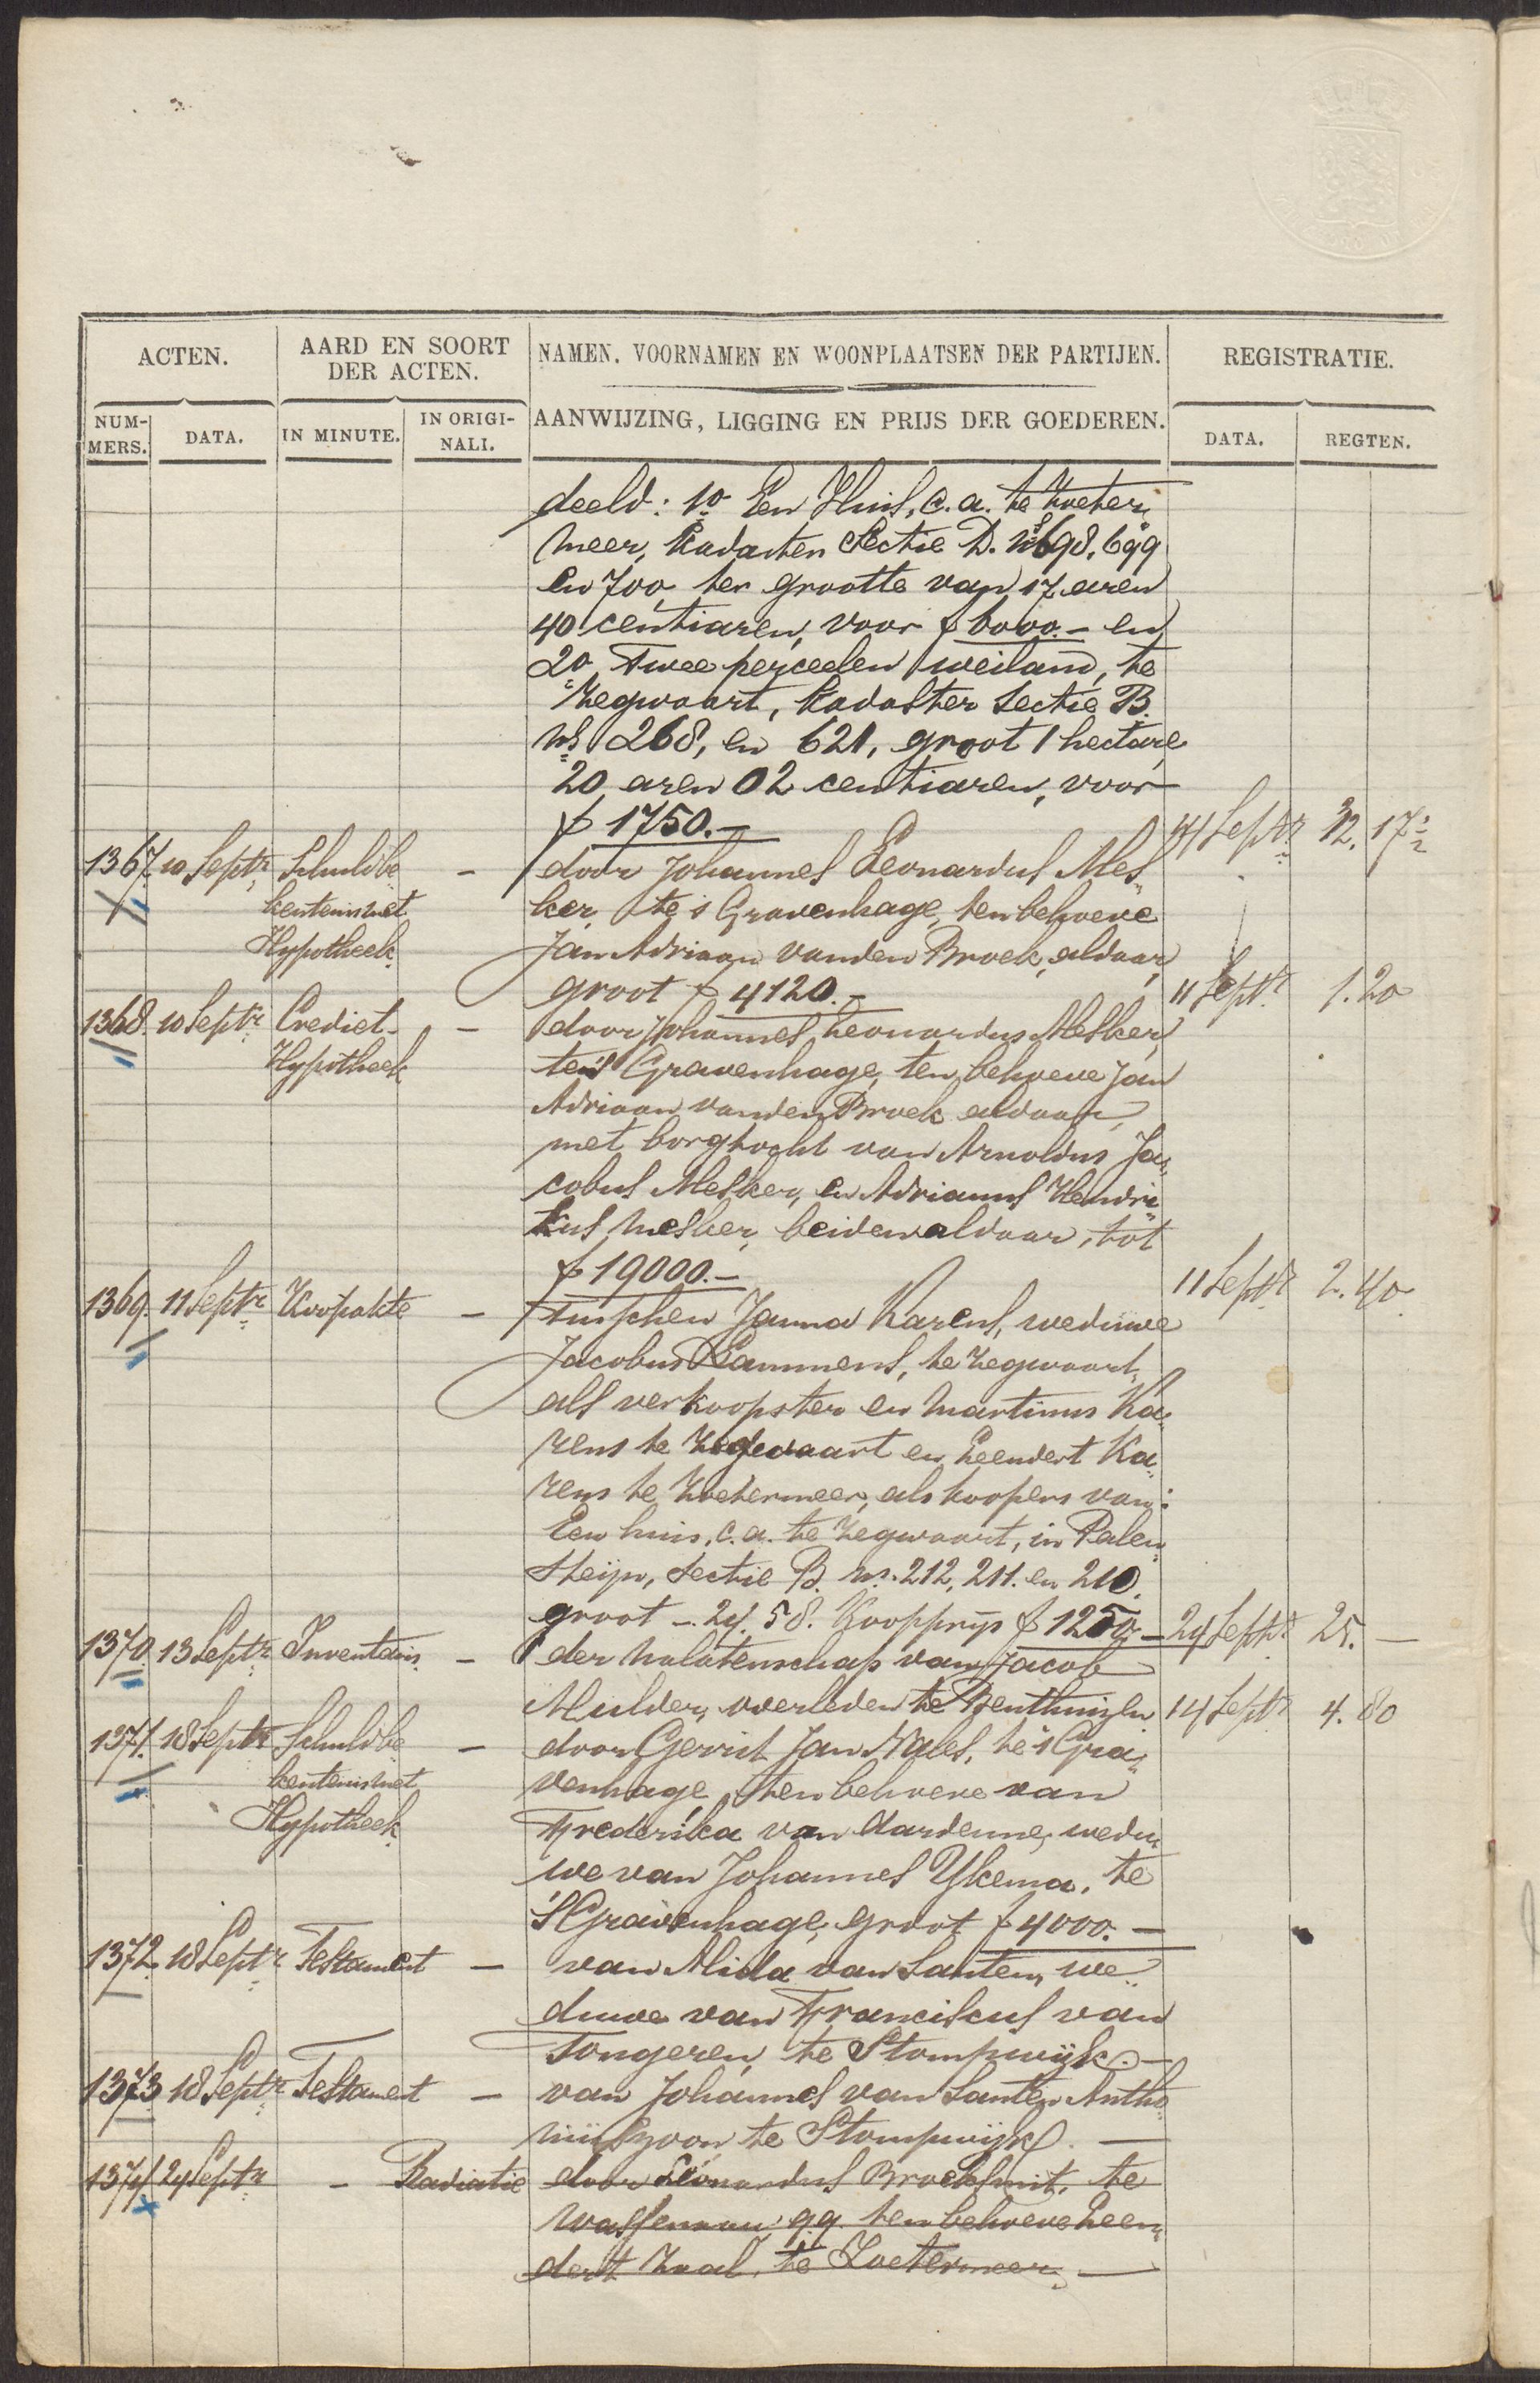 ACTEN.
AARD EN SOORT
DER ACTEN.
NAMEN, VOORNAMEN EN WOONPLAATSEN DER PARTIJEN.
REGISTRATIE.
NUM-
MERS.
DATA.
IN MINUTE.
IN ORIGI-
NALI.
AANWIJZING, LIGGING EN PRIJS DER GOEDEREN.
DATA.
REGTEN.
deeld: 1o Een Huis, c.a. te Zoeter„
meer, Kadaster Sectie D. ns 698, 699
en 700, ter grootte van 17 aren
40 centiaren, voor f 6000.- en
2o Twee perceelen weiland, te
Zegwaart, Kadaster Sectie B.
ns 268, en 621, groot 1 hectare,
20 aren 02 centiaren, voor
f 1750.- 11 Septr 32. 17 ½
1367. 10 Septr Schuldbe - door Johannes Leonardus Mes„
kentenis met ker, te 's Gravenhage, ten behoeve
Hypotheek Jan Adriaan van den Broek, aldaar,
groot f 4120.- 11 Septr 1. 20
1368. 10 Septr Crediet- - door Johannes Leonardus Mesker,
Hypotheek te 's Gravenhage, ten behoeve Jan
Adriaan van den Broek aldaar,
met borgtocht van Arnoldus Ja„
cobus Mesker, en Adrianus Hendri„
kus Mesker, beiden aldaar, tot
f 19000.- 11 Septr 2. 40
1369. 11 Septr Koopakte - tusschen Janna Karens, weduwe
Jacobus Lammens, te Zegwaart,
als verkoopster en Martinus Ka„
rens te Zegwaart en Leendert Ka„
rens te Zoetermeer, als koopers van:
Een huis, c.a. te Zegwaart, in Palen„
steijn, Sectie B. ns. 212, 211. en 210.
groot -. 24. 58. Koopprijs f 1250.- 24 Septr 25. -
1370. 13 Septr Inventaris - der nalatenschap van Jacob
Mulder, overleden te Benthuizen 14 Septr 4. 80
1371. 18 Septr Schuldbe - door Gerrit Jan Nales, te 's Gra„
kentenis met venhage, ten behoeve van
Hypotheek Frederika van Aardenne, wedu„
we van Johannes Ykema, te
's Gravenhage, groot f 4000.-
1372. 18 Septr Testament - van Alida van Santen, we„
duwe van Franciscus van
Tongeren, te Stompwijk.-
1373 18 Septr Testament - van Johannes van Santen Antho„
niuszoon, te Stompwijk. -
1374 24 Septr - Radiatie door Leonardus Broeksmit, te
Wassenaar, q.q. ten behoeve Leen„
dert Zaal, te Zoetermeer. -